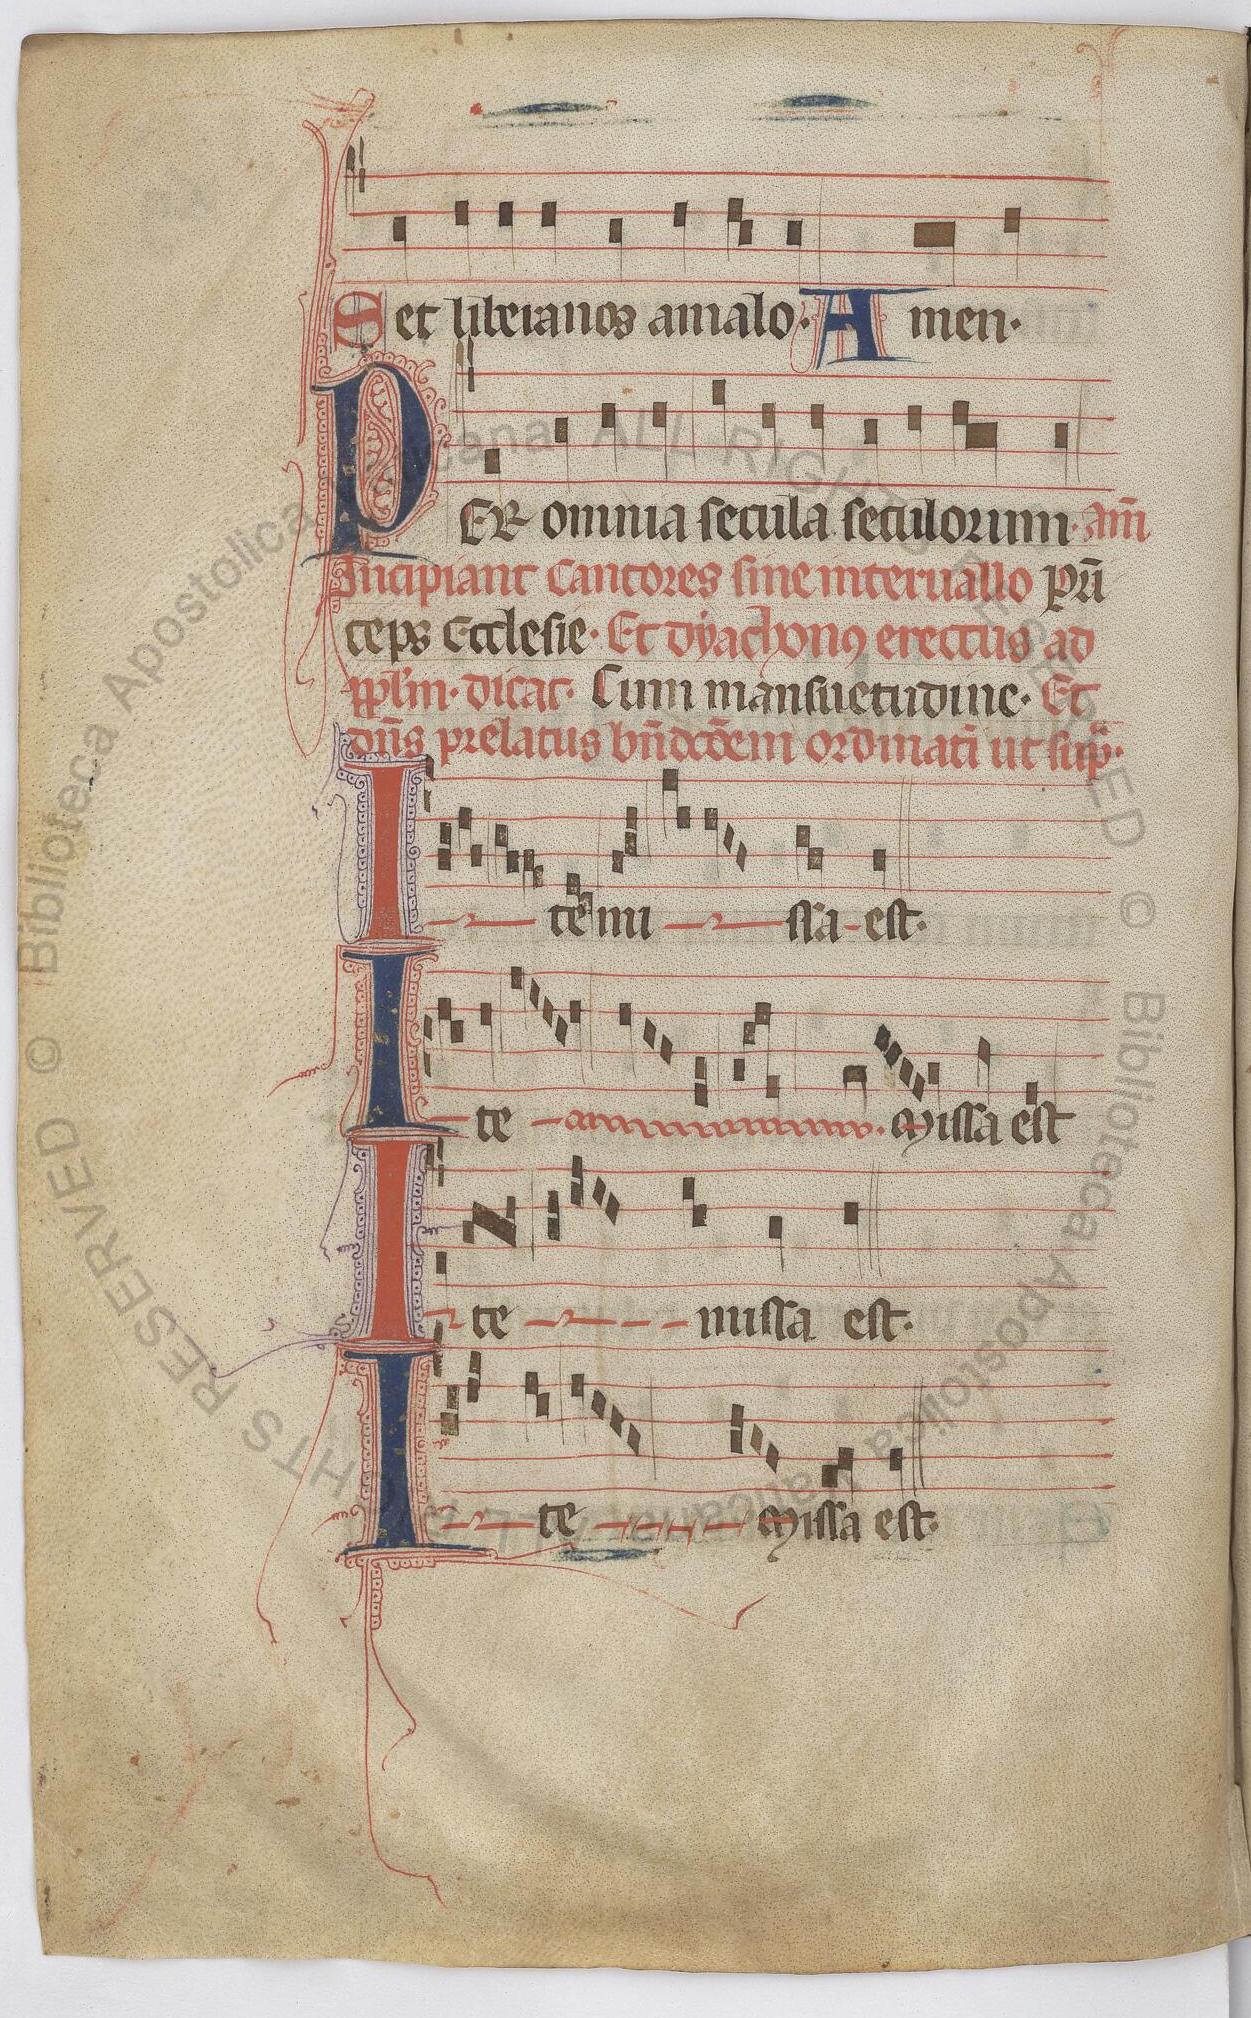 Set liberanos amalo. Amen.
PER omnia secula seculorum. am̄
Incipiant Cantores sine interuallo Prī
ceps Ecclesie. Et dyachonꝰ erectus ad
pplm̄. dicat. Cum mansuetudine. Et
dn̄s prelatus bn̄dcōem ordinati ut sup̄.
Ite missa est.
Ite Missa est
Ite missa est.
Ite Missa est.
© Biblioteca Apostolica Vaticana ALL RIGHTS RESERVED © Biblioteca Apostolica Vaticana ALL RIGHTS RESERVED